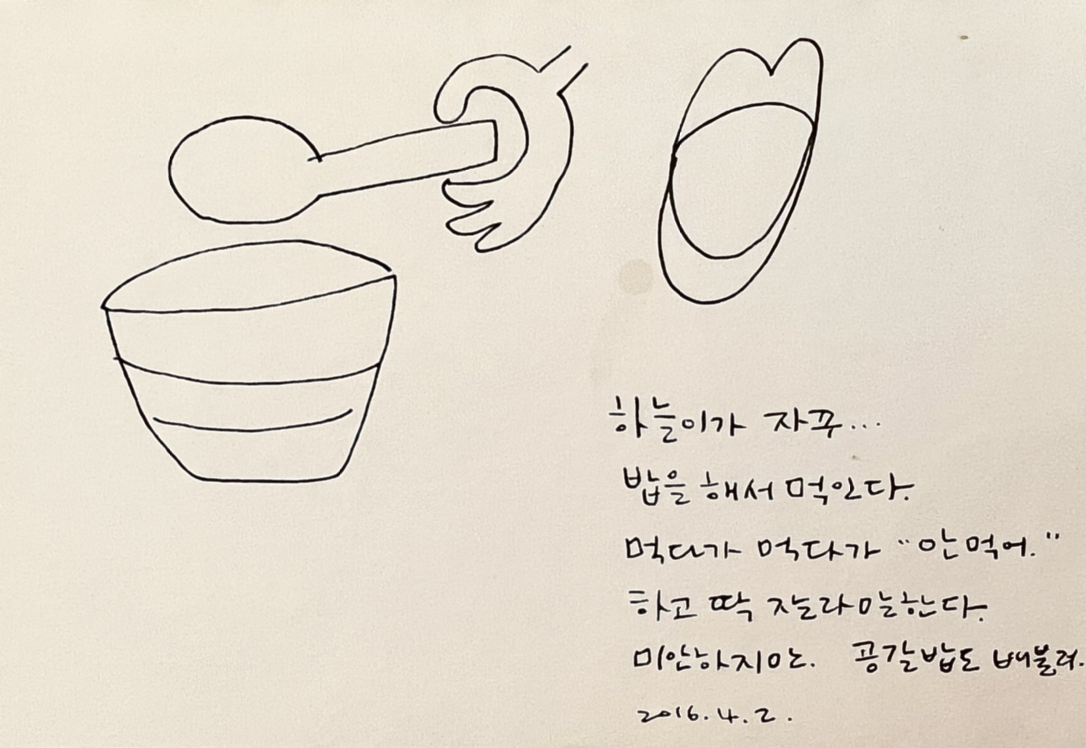 하늘이가 자꾸...
밥을 해서 먹인다.
먹다가 먹다가 "안먹어."
하고 딱 잘라말한다.
미안하지만. 공갈밥도 배불러.
2016.4.2.